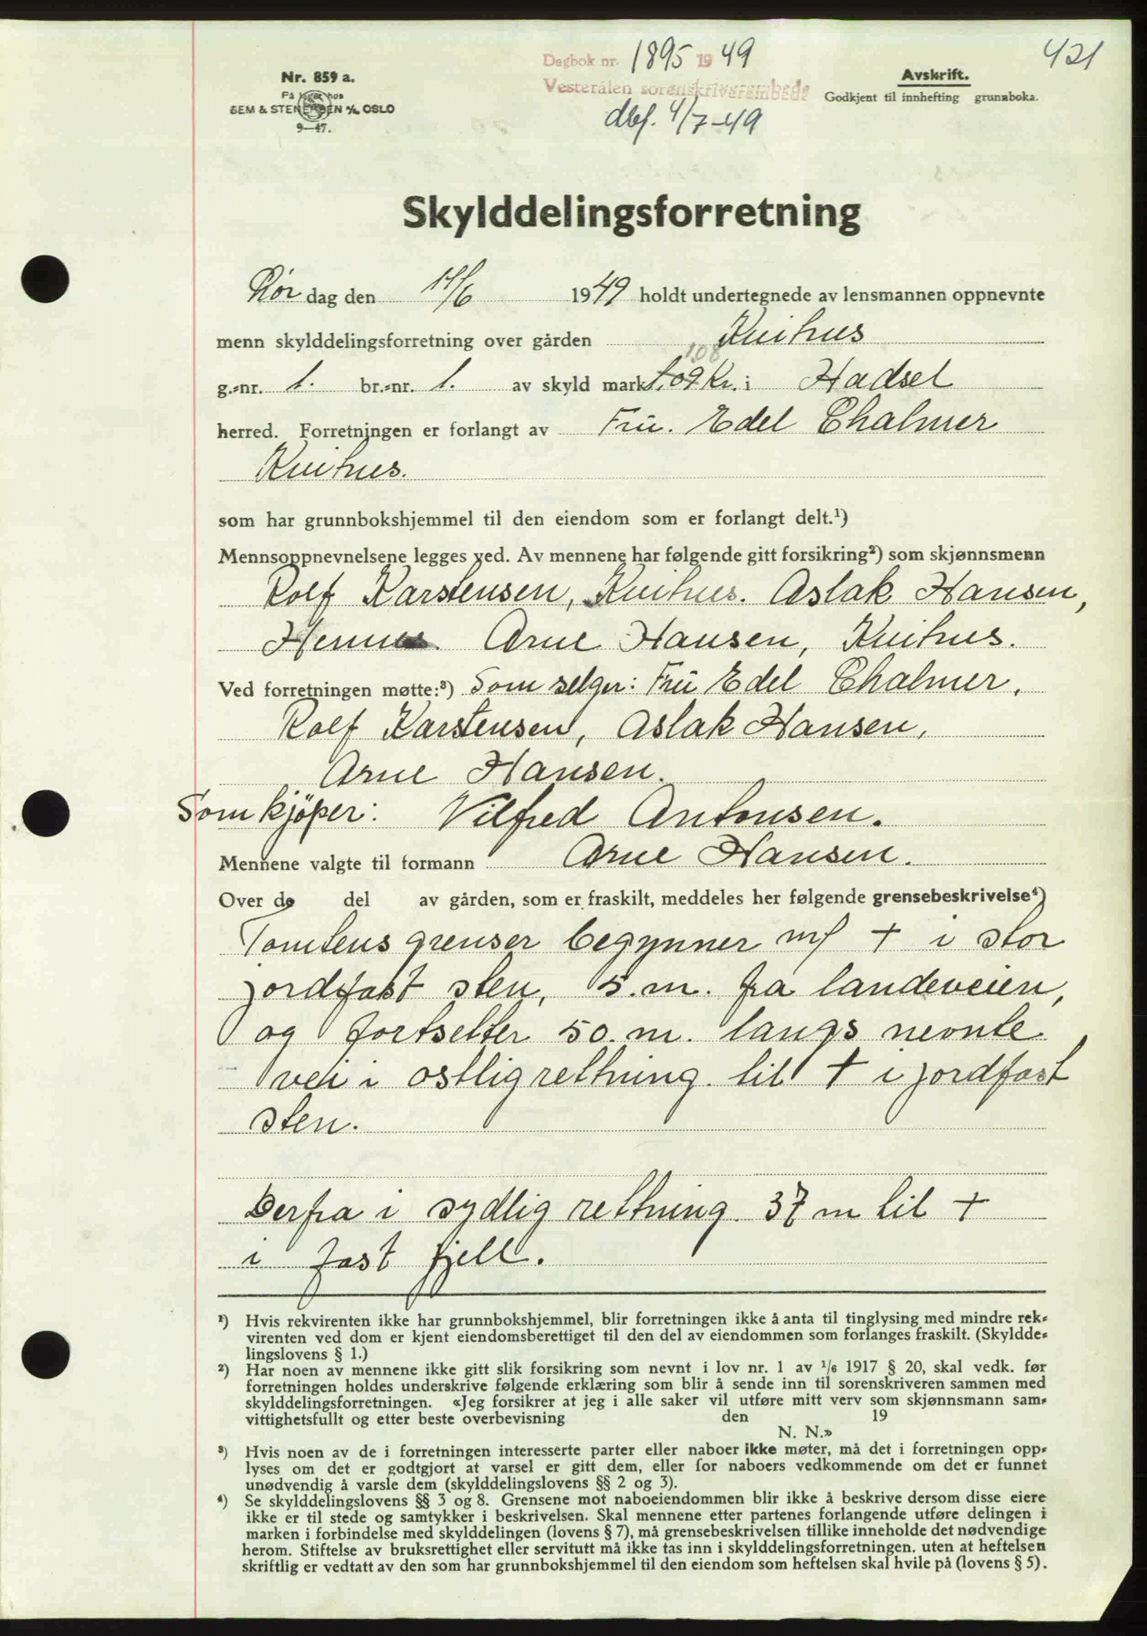 421
Dagbok nr. 1895 1949
Vesterålen sorenskriverembede
dbf. 4/7-49
Nr. 859 a.
På lager hos
SEM & STENERSEN A/S, OSLO
9—47.
Avskrift.
Godkjent til innhefting grunnboka.
Skylddelingsforretning
Lør dag den 11/6 1949 holdt undertegnede av lensmannen oppnevnte
menn skylddelingsforretning over gården Kvithus
1.08
g.-nr. 1. br.-nr. 1. av skyld mark 1,09 Kr. i Hadsel
herred. Forretningen er forlangt av Fru. Edel Chalmer
Kvithus.
som har grunnbokshjemmel til den eiendom som er forlangt delt.¹)
Mennsoppnevnelsene legges ved. Av mennene har følgende gitt forsikring²) som skjønnsmenn
Rolf Karstensen, Kvithus. Aslak Hansen,
Hennes. Arne Hansen, Kvithus.
Ved forretningen møtte:³) Som selger: Fru Edel Chalmer,
Rolf Karstensen, Aslak Hansen,
Arne Hansen.
Som kjöper: Vilfred Antonsen.
Mennene valgte til formann Arne Hansen.
Over de del av gården, som er fraskilt, meddeles her følgende grensebeskrivelse⁴)
Tomtens grenser begynner m/ + i stor
jordfast sten, 5.m. fra landeveien,
og fortsetter 50.m. langs nevnte
vei i ostlig rettning. til + i jordfast
sten.
Derfra i sydlig rettning. 37 m til +
i fast fjell.
¹) Hvis rekvirenten ikke har grunnbokshjemmel, blir forretningen ikke å anta til tinglysing med mindre rek-
virenten ved dom er kjent eiendomsberettiget til den del av eiendommen som forlanges fraskilt. (Skyldde-
lingslovens § 1.)
²) Har noen av mennene ikke gitt slik forsikring som nevnt i lov nr. 1 av ¹/₆ 1917 § 20, skal vedk. før
forretningen holdes underskrive følgende erklæring som blir å sende inn til sorenskriveren sammen med
skylddelingsforretningen. «Jeg forsikrer at jeg i alle saker vil utføre mitt verv som skjønnsmann sam-
vittighetsfullt og etter beste overbevisning den 19
N. N.»
³) Hvis noen av de i forretningen interesserte parter eller naboer ikke møter, må det i forretningen opp-
lyses om det er godtgjort at varsel er gitt dem, eller for naboers vedkommende om det er funnet
unødvendig å varsle dem (skylddelingslovens §§ 2 og 3).
⁴) Se skylddelingslovens §§ 3 og 8. Grensene mot naboeiendommen blir ikke å beskrive dersom disse eiere
ikke er til stede og samtykker i beskrivelsen. Skal mennene etter partenes forlangende utføre delingen i
marken i forbindelse med skylddelingen (lovens § 7), må grensebeskrivelsen tillike inneholde det nødvendige
herom. Stiftelse av bruksrettighet eller servitutt må ikke tas inn i skylddelingsforretningen. uten at heftelsen
skriftlig er vedtatt av den som har grunnbokshjemmel til den eiendom som heftelsen skal hvile på (lovens § 5).